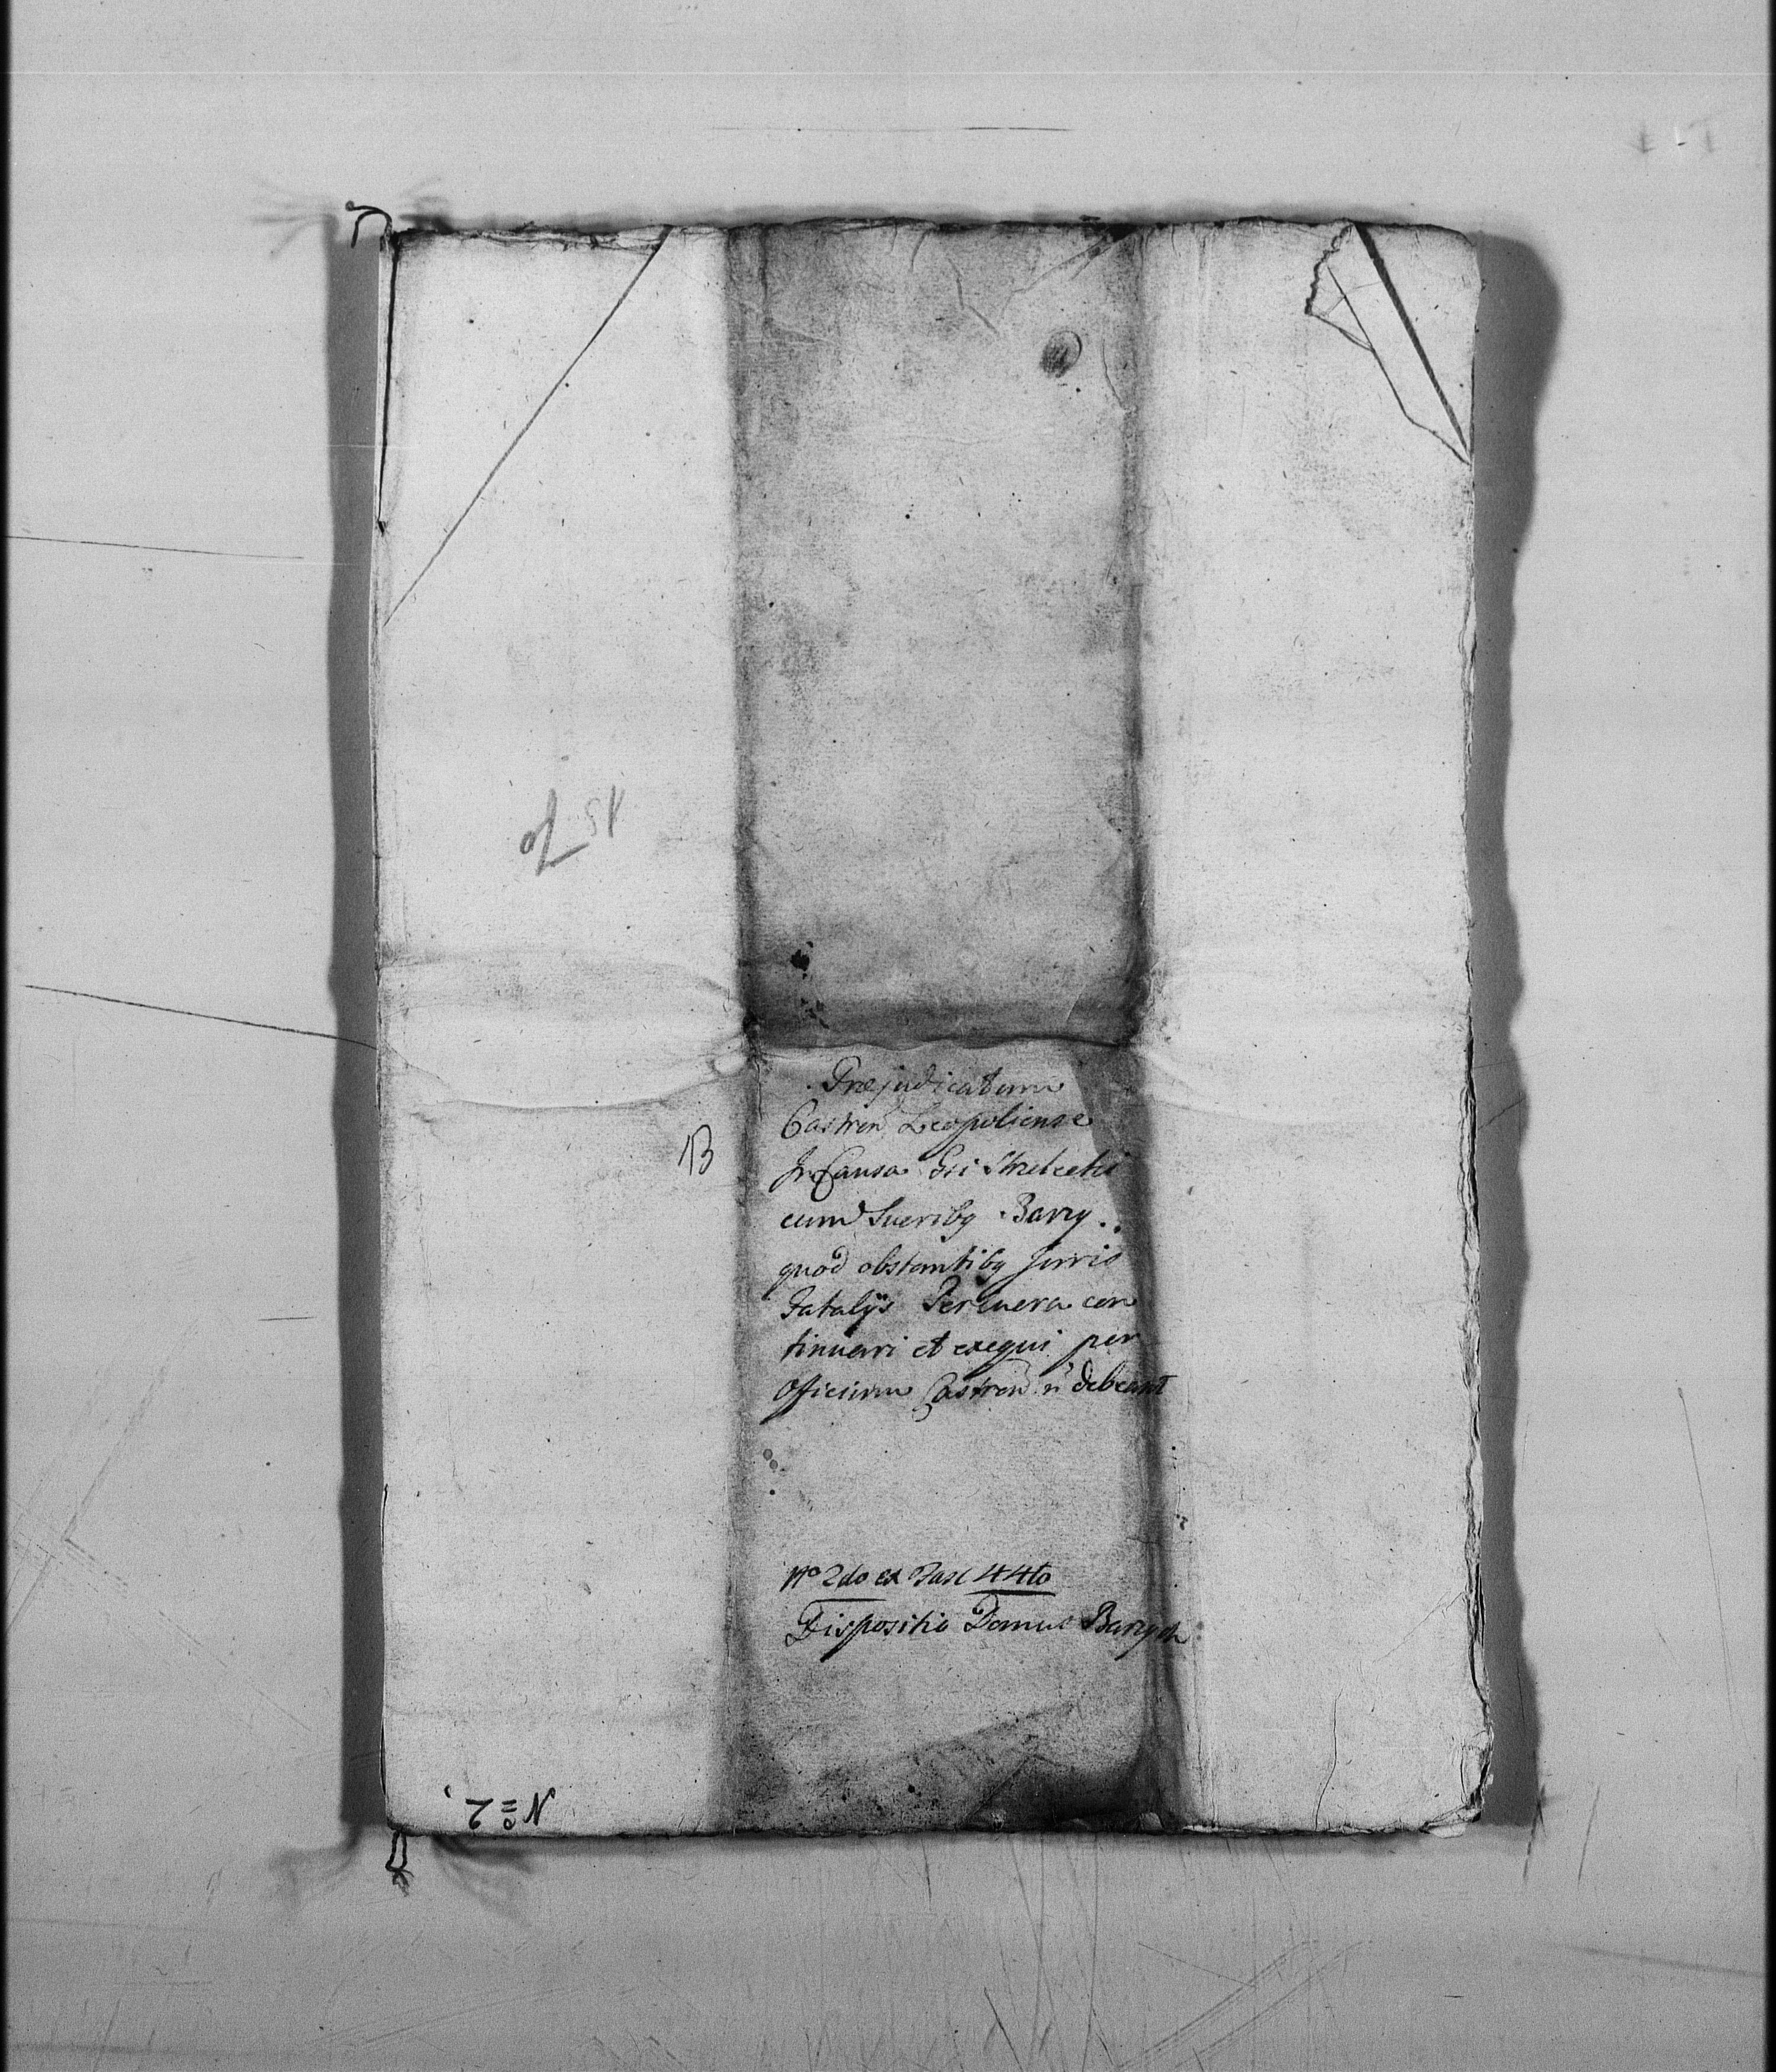 Præjudicatum
Castren Leopoliense
In Causa Gsi Strzelecki
cum Sucribq Barzy.
quod obstantibq Juris
Fatalijs Termera con
tinuari et exequi per
Officium Castren n debeant
B
No 2do ex Fasc 44to
Dispositio Domus Barzych
No 2